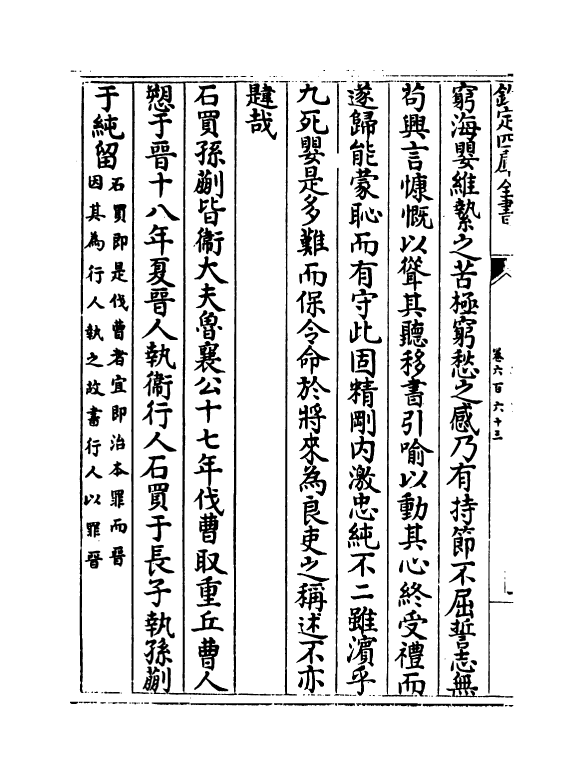 欽定四庫全書
卷六百六十三
窮海嬰維縶之苦極窮愁之感乃有持節不屈誓志無
茍興言慷慨以聳其聽移書引喻以動其心終受禮而
遂歸能蒙恥而有守此固精剛内激忠純不二雖濵乎
九死嬰是多難而保令命於將來為良吏之稱述不亦
韙哉
石買孫蒯皆衞大夫魯襄公十七年伐曹取重丘曹人
愬于晉十八年夏晉人執衞行人石買于長子執孫蒯
于純留石買即是伐曹者宜即治本罪而晉
因其為行人執之故書行人以罪晉